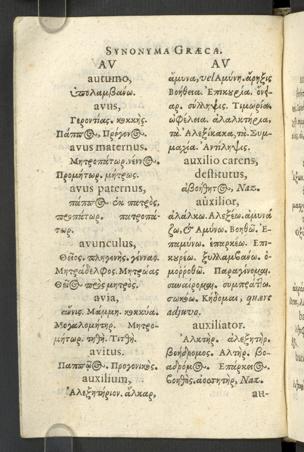 SYNONYMA GRÆCA.
AV
autumo,
ὑπολαμβανω.
avus,
Γεροντίας. κοκκής.
Πάππ Πρόγον
avus maternus.
Μητροπάτωρ.
Προμήτωρ. μήτρως.
avus paternus,
πάππ ὁκ πατρὸς,
προπάτωρ. πατροπά-
τωρ.
avunculus,
Θεῖος.
Μητράδελφος. Μητρώας
Θεῖ πρὸς μητρός.
avia,
Μάμμη. κοκκύα.
Μεγαλομήτηρ. Μητρο-
μήτωρ. τηθή. Τιτθή.
avitus.
Παππῷ. Προγονικὸς.
auxilium,
Ἀλεξητήριον. ἄλκαρ,
AV
ἄμυνα, vel Ἀμύνη. ἄρηξις
Βοήθεια. Ἐπικουρία. ὄνφ-
αρ. σύλληψις. Τιμωρία.
ὠφέλεια. ἀλαλκτήρια,
τὰ Ἀλεξίκακα, τὰ. Συμ-
μαχία. Ἀντίληψις.
auxilio carens,
destitutus,
ἀβοήθητ, Naz.
auxilior,
ἀλάλκω. Ἀλέξω. ἀμυνά-
ζω, & Ἀμύνω. Βοηθῶ. Ἐ-
παμύνω. ἐπαρκέω. Ἐπι-
κουρέω. ξυλλαμβάνω. ὁ-
μορροθῶ. Παραγίνομαι.
συναίρομαι. συμπράττω.
σωκέω. Κήδομαι, quære
adjuvo.
auxiliator.
Ἀλκτήρ. ἀλεξητήρ.
βοηδρόμος. Ἀλτήρ. βο-
αδρόμ. Ἐπάρκι
βοηθὸς. ἀοσσητήρ, Naz.
au-